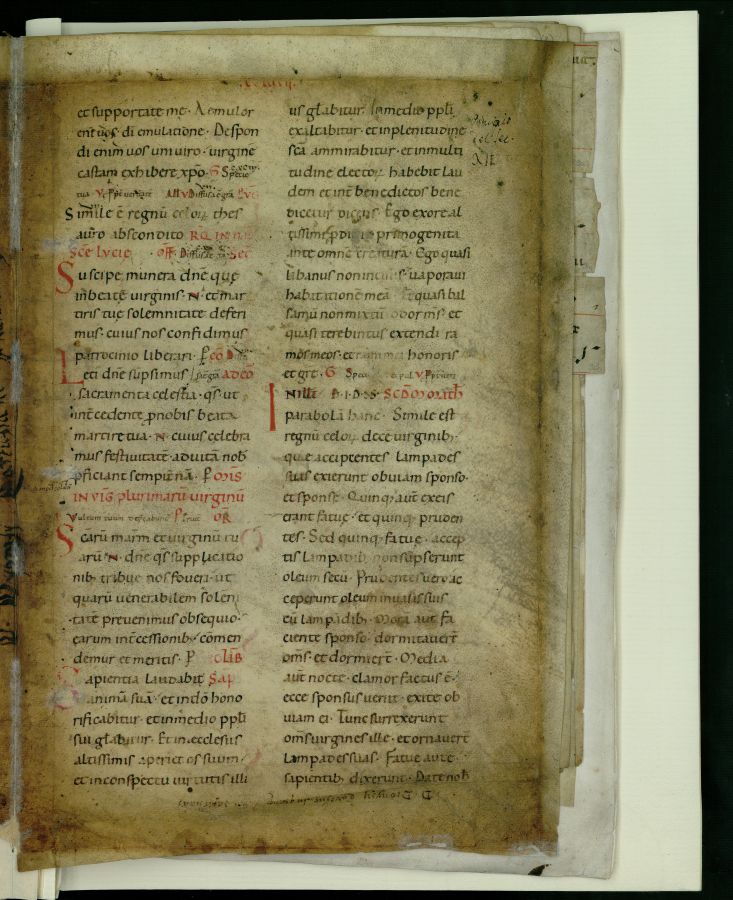 et supportate me · Aemulor
enī uos · dī emulatione · Despon
di enim uos uni uiro · uirgine
castam exhibere xpo · G Specie
tua V Diffusa ē grā
Simile ē regnū celoꝝ thes
auro abscondito
Sce lvcie Off Diffusa
Suscipe munera dn̄e que
in beatę virginis · N · et mar
tiris tuę solemnitate deferi
mus · cuius nos confidimus
patrocinio liberari · P cō
Leti dn̄e supsimus ad cō
sacramenta celestia · qs · ut
int̄cedente ꝓnobis beata
martire tua · N · cuius celebra
mus festiuitatē · aduitā nob
pficiant sempit̄nā · P
IN VIG plurimarū uirginū
Vultum tuum OR
Scārū mar̄m et uirginū tu
arū · N · dn̄e qs supplicatio
nib tribue nos foueri · ut
quarū uenerabilem solēni
tatē preuenimus obsequio ·
earum int̄cessionib · cōmen
demur et meritis · P
Sapientia laudabit Sap
animā suā · et in dō hono
rificabitur · et in medio ppli
sui gl̄abitur · Et in ecclesiis
altissimis aperiet os suum ·
et in conspectu uirtutis illi
us gl̄abitur · In medio ppli
exaltabitur · et in plenitudine
scā ammirabitur · et in multi
tudine electoꝝ habebit lau
dem et int̄ benedictos bene
dicetur dicens · Ego ex ore al
tissimi ꝓdiui primogenita
ante omnē creaturā · Ego quasi
libanus non incisus uaporaui
habitationē meā · et quasi bal
samū non mixtū odor m̄s · et
quasi terebintus extendi ra
mos meos · et rami mei honoris
et grē · G Specie
In illo SCDM MATH
parabolā hanc · Simile est
regnū celoꝝ decē uirginib ·
quę accipientes lampades
suas exierunt obuiam sponso ·
et sponse · Quinq aut̄ ex eis
erant fatuę · et quinq pruden
tes · Sed quinq fatuę · accep
tis lampadib non sūpserunt
oleum secū · Prudentes uero ac
ceperunt oleum in uasis suis
cū lampadib · Mora aut̄ fa
ciente sponso · dormitauer̄t
om̄s · et dormier̄t · Media
aut̄ nocte · clamor factus ē ·
ecce sponsus uenit · exite ob
uiam ei · Tunc surrexerunt
om̄s uirgines ille · et ornauer̄t
lampades suas · Fatuę aut̄ ·
sapientib dixerunt · Date nob